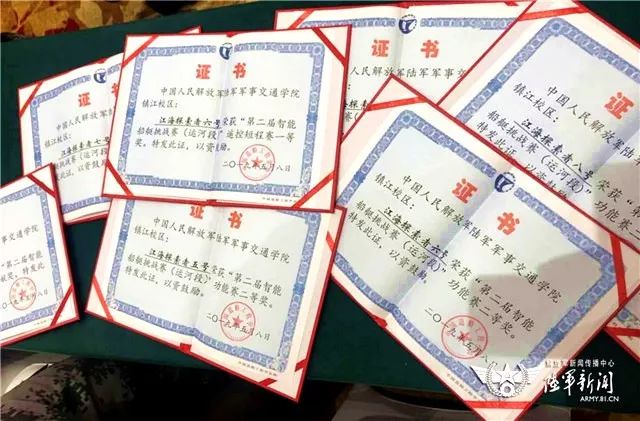 证书
中国人民解放军陆军军事交通学院
镇江校区：
江海探索者六号荣获“第二届智能
船艇挑战赛（运河段）”遥控短程赛一等
奖。特发此证，以资鼓励。
二〇一九年五月八日
证书
中国人民解放军陆军军事交通学院
镇江校区：
江海探索者五号荣获“第二届智能
船艇挑战赛（运河段）”功能赛二等奖。
特发此证，以资鼓励。
二〇一九年五月八日
证书
中国人民解放军陆军军事交通学院
镇江校区：
江海探索者六号荣获“第二届智能
船艇挑战赛（运河段）”功能赛二等奖。
特发此证，以资鼓励。
二〇一九年五月八日
证书
中国人民解放军陆军军事交
镇江校区：
证
中国人民解放军陆
镇江校区：
江海探索者八号荣获“
船艇挑战赛（运河段）”功能赛
特发此证，以资鼓励。
中国人民
镇江校区：
事交通学院
“第二届智能
奖。特发此
解放军新闻传播中心
陆军新闻
ARMY.81.CN